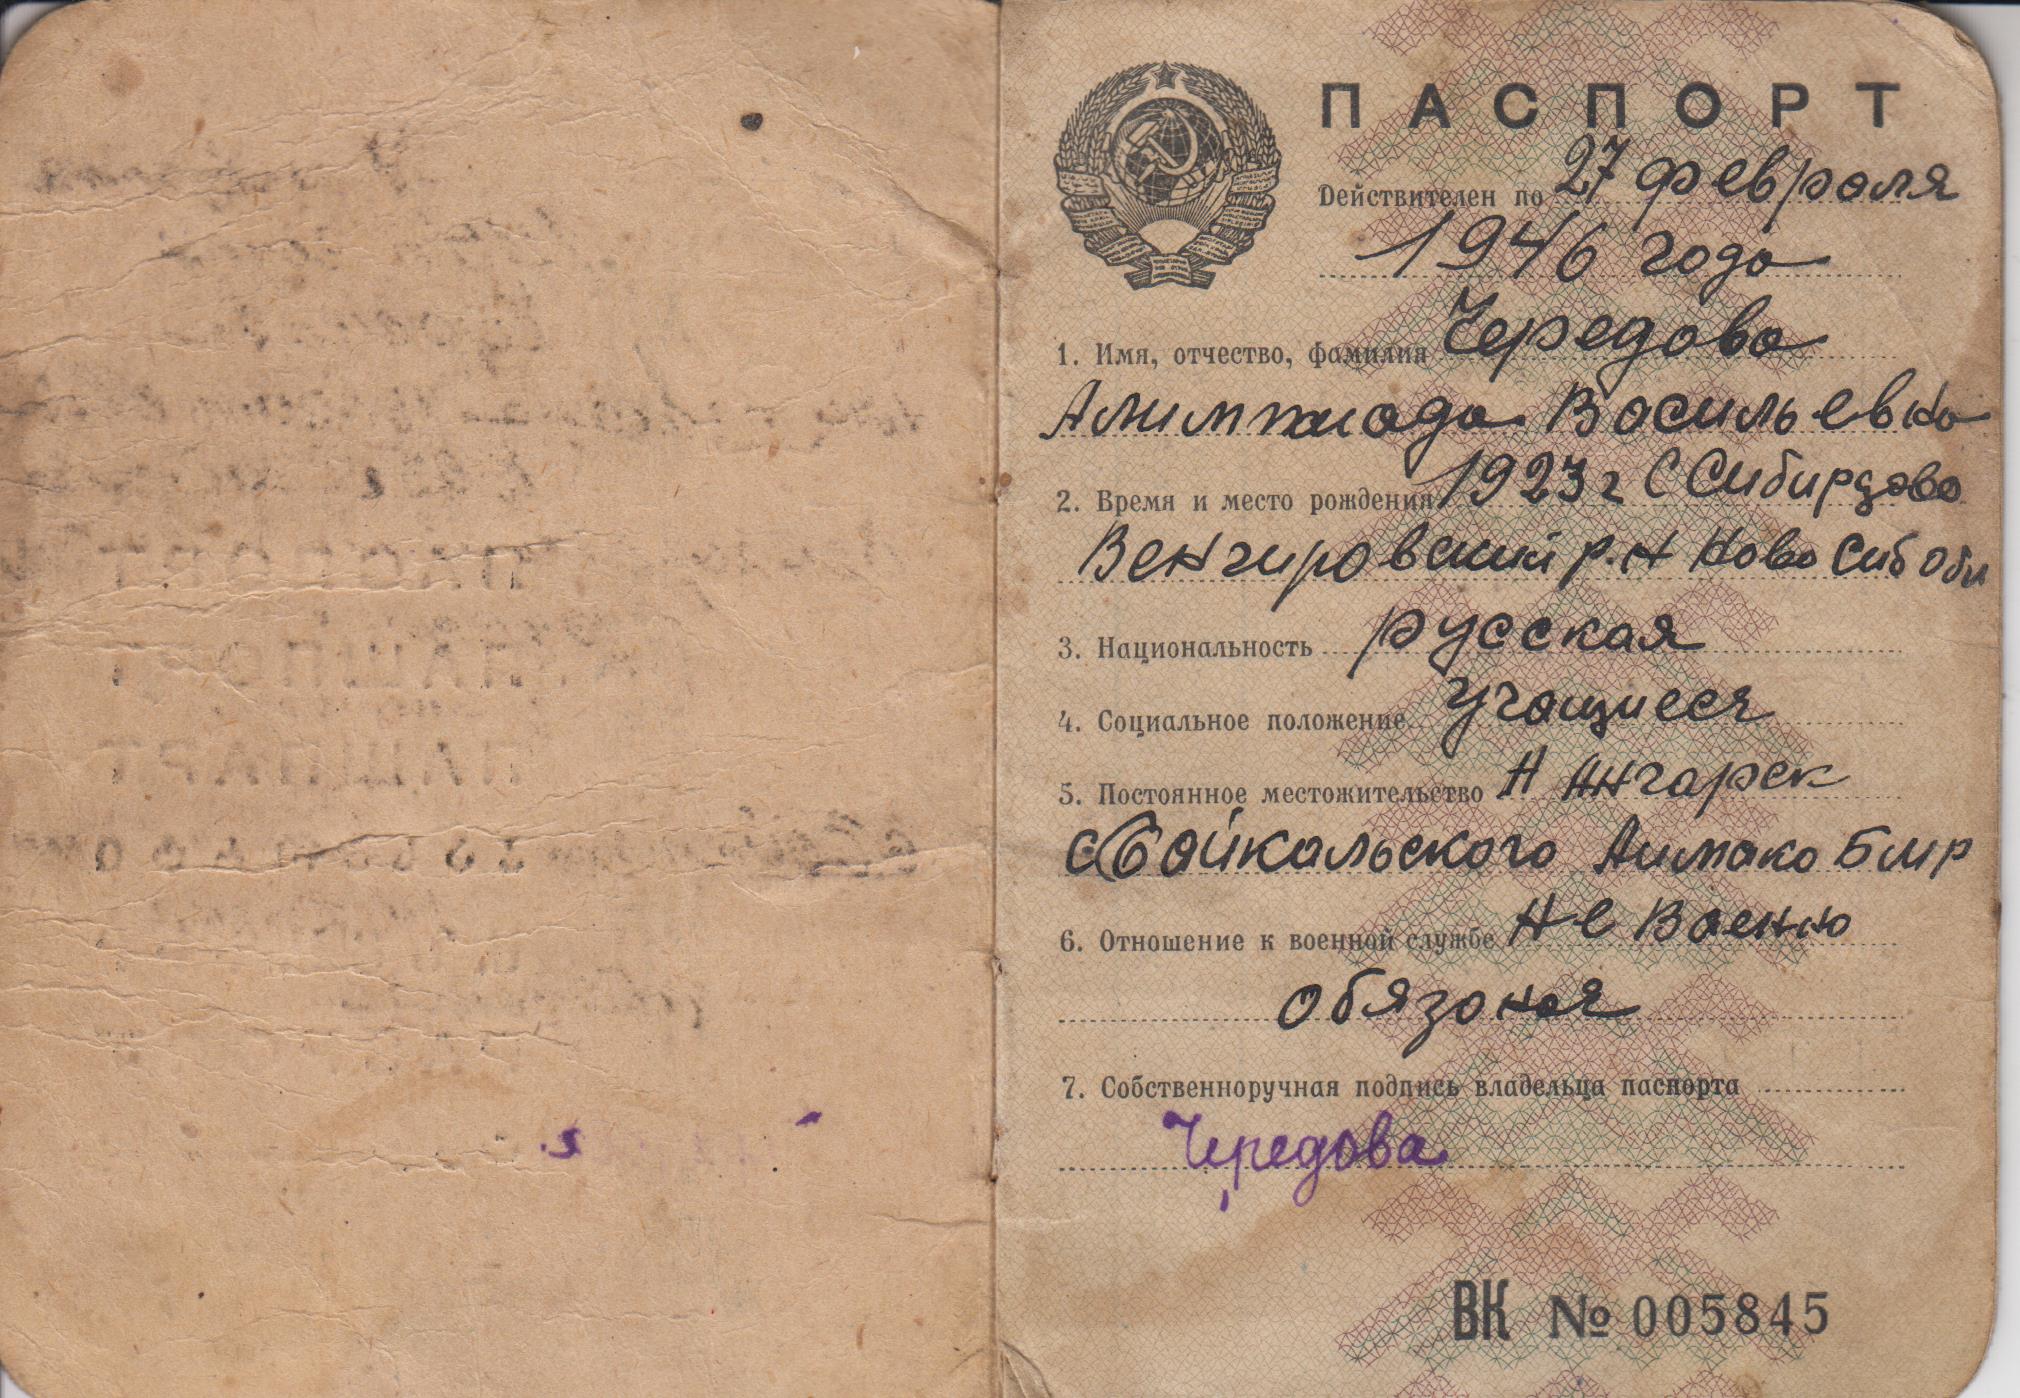 ПАСПОРТ
Действителен по 27 февраля
1946 года
1. Имя, отчество, фамилия Чередова
Алимпиада Васильевна
2. Время и место рождения 1923 г С Сибирцово
Венгировский р.н Ново Сиб Обл
3. Национальность русская
4. Социальное положение учащиеся
5. Постоянное местожительство Н Ангарск
с Байкальского Аимака БМР
6. Отношение к военной службе Не Военно
обязоная
7. Собственноручная подпись владельца паспорта
Чередова
ВК № 005845